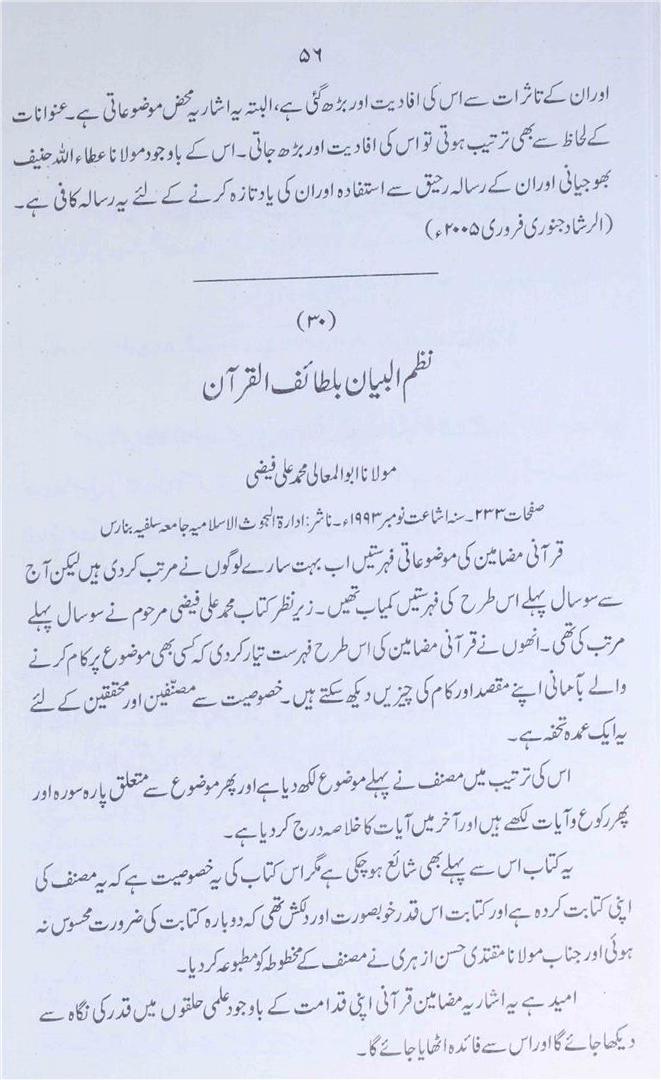 ۵۶
اور ان کے تاثرات سے اس کی افادیت اور بڑھ گئی ہے، البتہ یہ اشاریہ محض موضوعاتی ہے۔ عنوانات
کے لحاظ سے بھی ترتیب ہوتی تو اس کی افادیت اور بڑھ جاتی۔ اس کے باوجود مولانا عطاء اللہ حنیف
بھوجیانی اور ان کے رسالہ رحیق سے استفادہ اور ان کی یاد تازہ کرنے کے لئے یہ رسالہ کافی ہے۔
(الرشاد جنوری فروری ۲۰۰۵ء)
(۳۰)
نظم البیان بلطائف القرآن
مولانا ابوالمعالی محمد علی فیضی
صفحات ۲۳۳۔ سنہ اشاعت نومبر ۱۹۹۳ء۔ ناشر: ادارۃ البحوث الاسلامیہ جامعہ سلفیہ بنارس
قرآنی مضامین کی موضوعاتی فہرستیں اب بہت سارے لوگوں نے مرتب کردی ہیں لیکن آج
سے سو سال پہلے اس طرح کی فہرستیں کمیاب تھیں۔ زیر نظر کتاب محمد علی فیضی مرحوم نے سو سال پہلے
مرتب کی تھی۔ انھوں نے قرآنی مضامین کی اس طرح فہرست تیار کردی کہ کسی بھی موضوع پر کام کرنے
والے بآسانی اپنے مقصد اور کام کی چیزیں دیکھ سکتے ہیں۔ خصوصیت سے مصنّفین اور محققین کے لئے
یہ ایک عمدہ تحفہ ہے۔
اس کی ترتیب میں مصنف نے پہلے موضوع لکھ دیا ہے اور پھر موضوع سے متعلق پارہ سورہ اور
پھر رکوع و آیات لکھے ہیں اور آخر میں آیات کا خلاصہ درج کردیا ہے۔
یہ کتاب اس سے پہلے بھی شائع ہوچکی ہے مگر اس کتاب کی یہ خصوصیت ہے کہ یہ مصنف کی
اپنی کتابت کردہ ہے اور کتابت اس قدر خوبصورت اور دلکش تھی کہ دوبارہ کتابت کی ضرورت محسوس نہ
ہوئی اور جناب مولانا مقتدیٰ حسن ازہری نے مصنف کے مخطوطہ کو مطبوعہ کردیا۔
امید ہے یہ اشاریہ مضامین قرآنی اپنی قدامت کے باوجود علمی حلقوں میں قدر کی نگاہ سے
دیکھا جائے گا اور اس سے فائدہ اٹھایا جائے گا۔